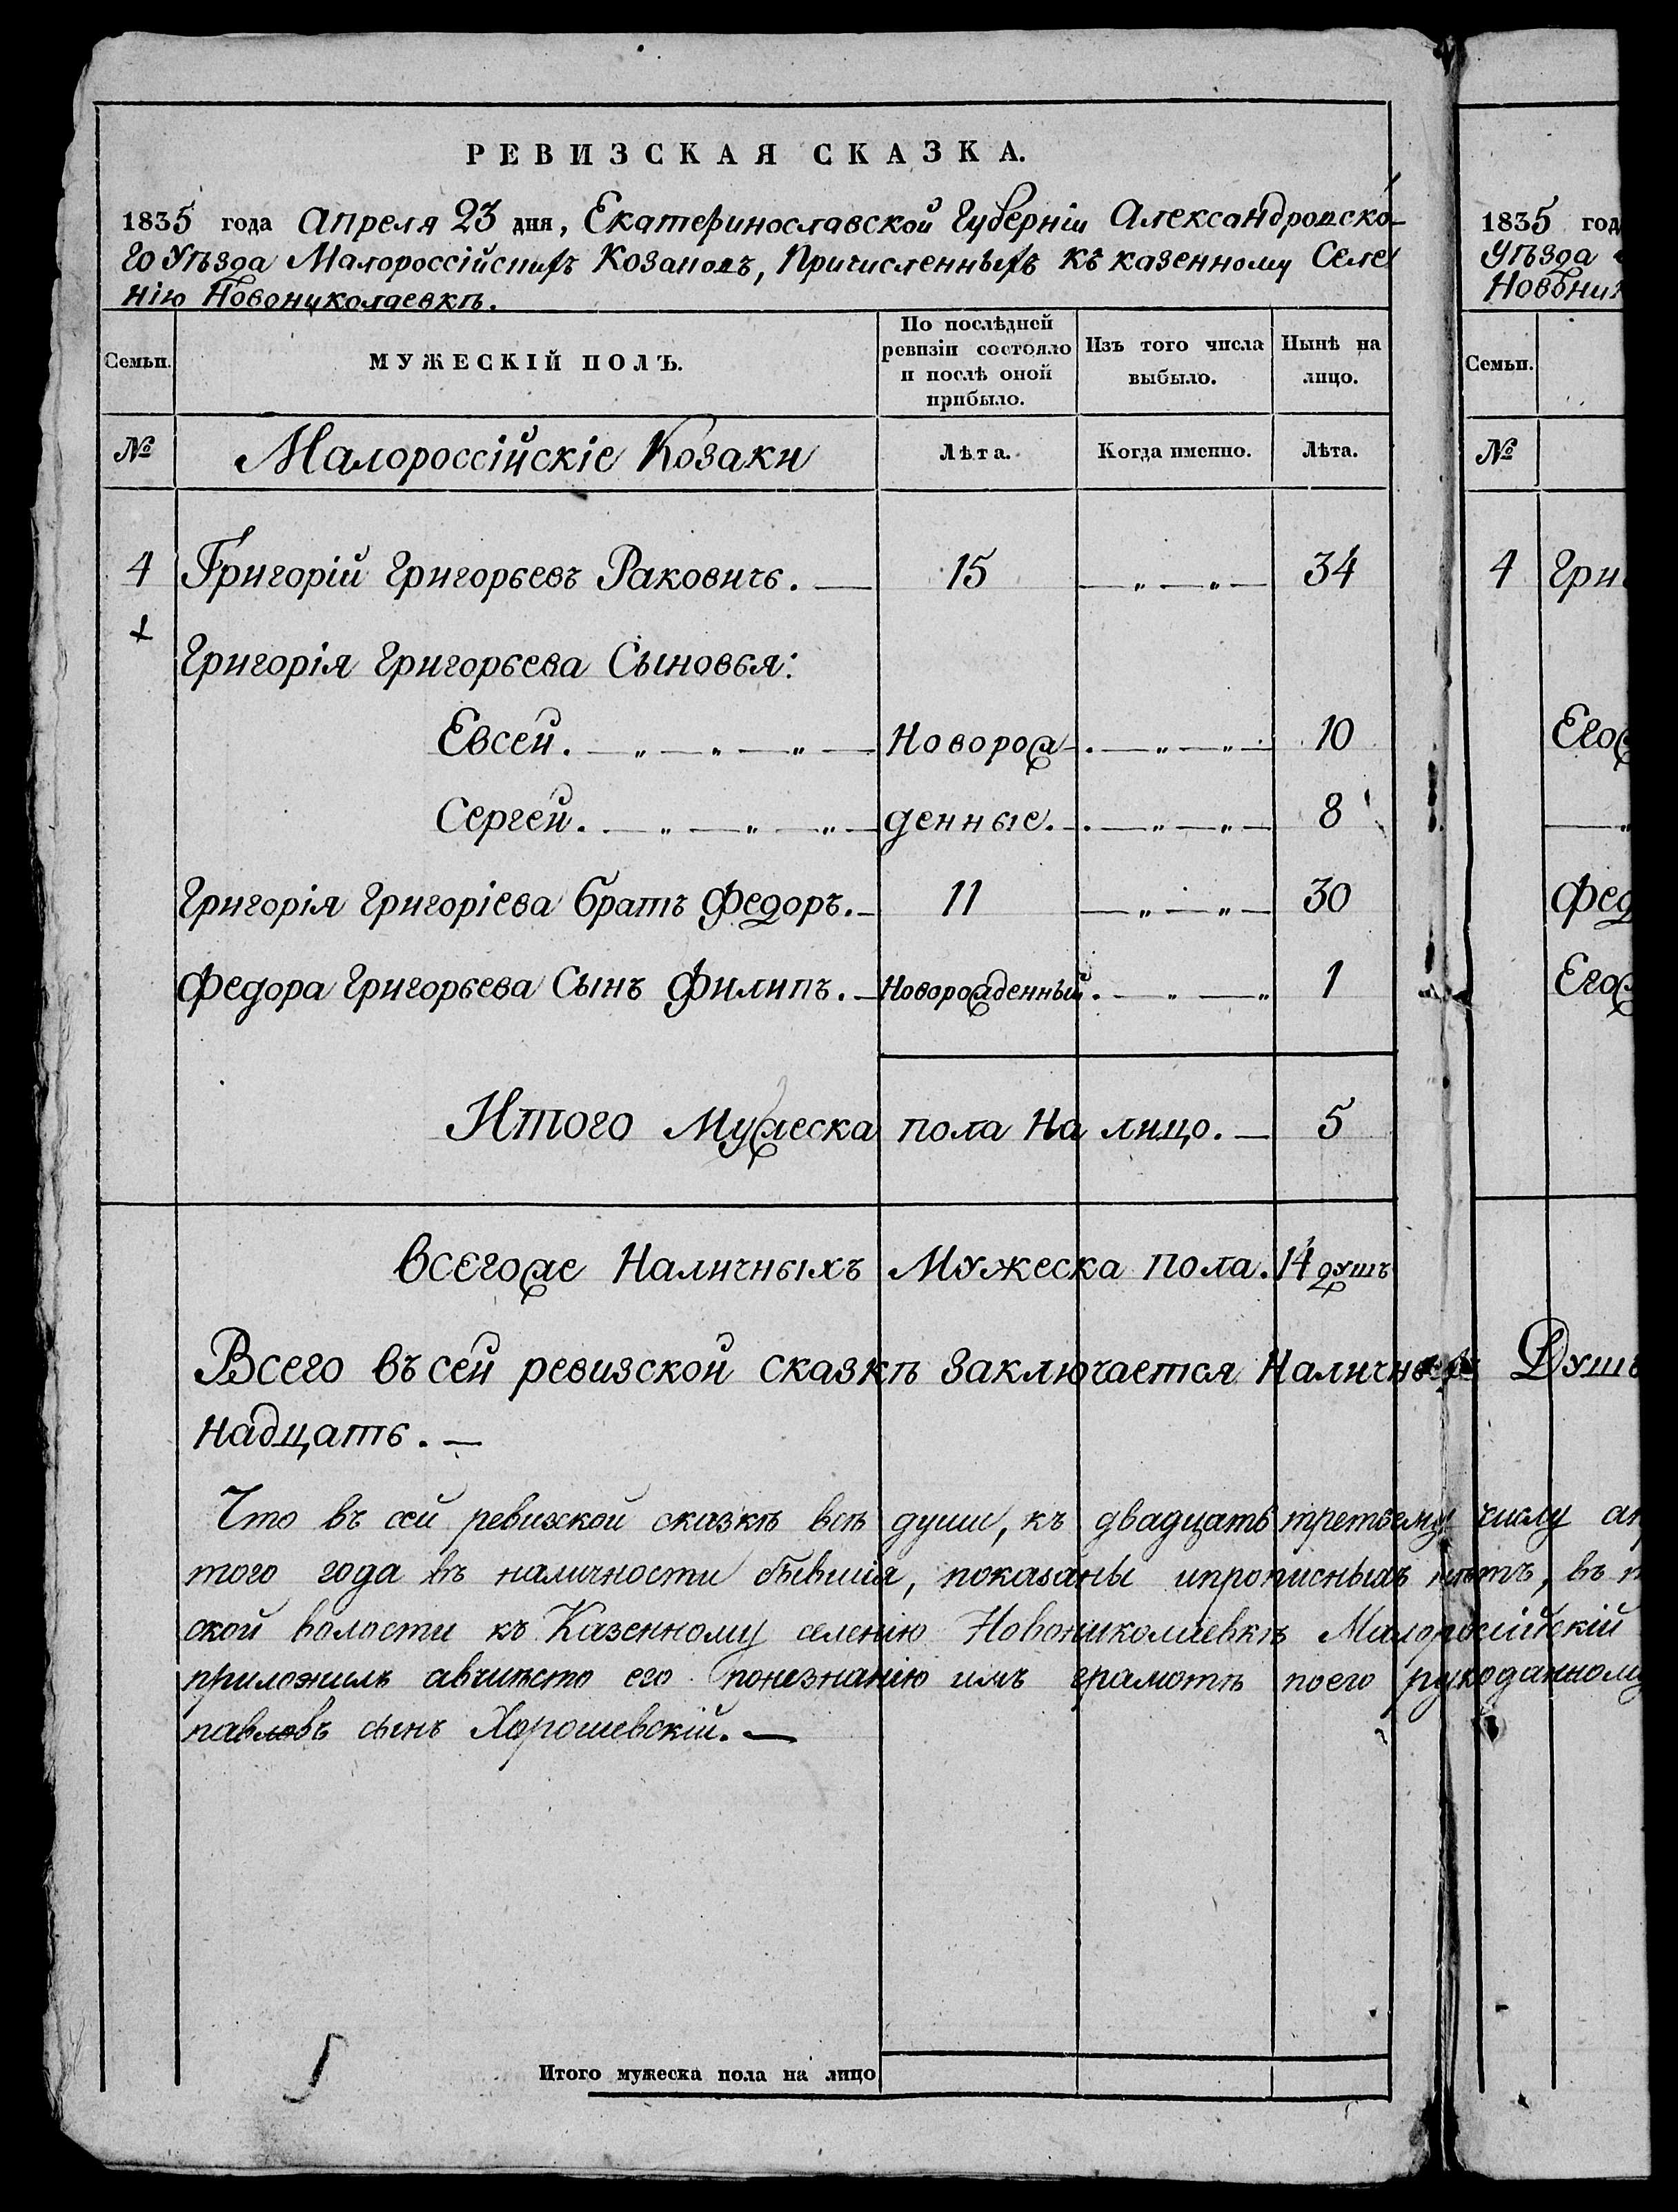 РЕВИЗСКАЯ СКАЗКА.
1835 года Апреля 23 дня, Екатеринославской Губерніи Александровско-
го Уѣзда Малороссійскихъ Козаковъ, Причисленныхъ къ казенному Селе
нію Новониколаевкѣ.
Семьи. МУЖЕСКІЙ ПОЛЪ. По послѣдней ревизіи состояло и послѣ оной прибыло. Изъ того числа выбыло. Нынѣ на лицо.
№ Малороссійскіе Козаки Лѣта. Когда именно. Лѣта.
4 Григорій Григорьевъ Раковичь. — 15 — „ — „ — 34
Григорія Григорьева Сыновья:
Евсей. — „ — „ — „ — Новорож- . — „ — „ — 10
Сергей. — „ — „ — „ — денные. — . — „ — „ — 8
Григорія Григоріева братъ Федоръ. — 11 — „ — „ — 30
Федора Григорьева Сынъ Филипъ. — Новорожденный . — „ — „ 1
Итого Мужеска пола На лицо. — 5
Всегоже Наличныхъ Мужеска пола. 14 душъ
Всего въ сей ревизской сказкѣ Заключается Наличныхъ Душъ
надцать. —
Что въ сей ревизской сказкѣ всѣ души, къ двадцать третьему числу
того года въ наличности бывшія, показаны ипрописныхъ нѣтъ, въ
ской волости къ Казенному селенію Новониколаевкѣ Малороссійскій
приложилъ авмѣсто его понезнанію имъ грамотѣ поего рукоданному
павловъ сынъ Хорошевскій. —
Итого мужеска пола на лицо
1835 год
Уѣзда
Новони
Семьи.
№
4 Гри
Егож
Фед
Егож